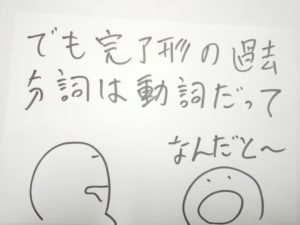 でも完了形の過去
分詞は動詞だって
なんだと〜